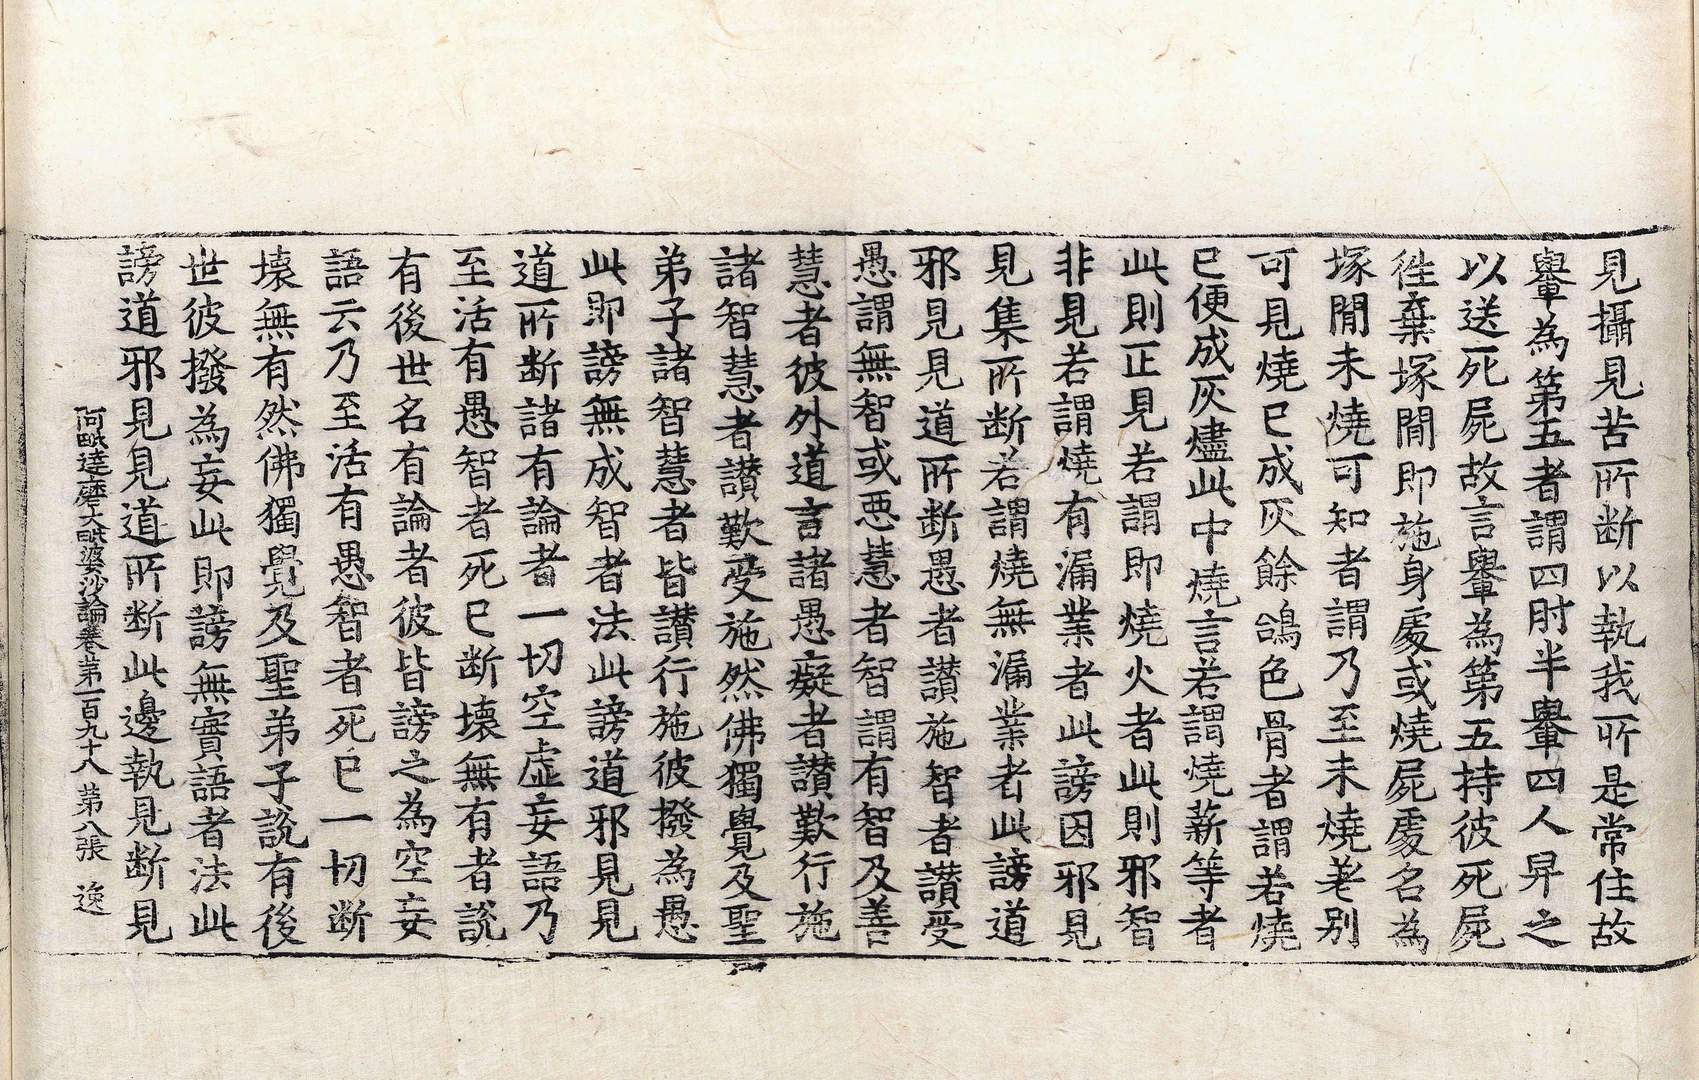 見攝見苦所断以執我所是常住故
轝為第五者謂四肘半轝四人舁之
以送死屍故言轝為第五持彼死屍
徃棄塚閒即施身處或燒屍處名為
塚閒未燒可知者謂乃至未燒荖別
可見燒已成灰餘鴿色骨者謂若燒
已便成灰燼此中燒言若謂燒薪等者
此則正見若謂即燒火者此則邪智
非見若謂燒有漏業者此謗因邪見
見集所断若謂燒無漏業者此謗道
邪見見道所断愚者讃施智者讃受
愚謂無智或悪慧者智謂有智及善
慧者彼外道言諸愚癡者讃歎行施
諸智慧者讃歎受施然佛獨覺及聖
弟子諸智慧者皆讃行施彼撥為愚
此即謗無成智者法此謗道邪見見
道所断諸有論者一切空虛妄語乃
至活有愚智者死已断壞無有者說
有後世名有論者彼皆謗之為空妄
語云乃至活有愚智者死已一切断
壞無有然佛獨覺及聖弟子說有後
世彼撥為妄此即謗無實語者法此
謗道邪見見道所断此邊執見断見
阿毗達磨大毗婆沙論卷第一百九十八 第八張 逸